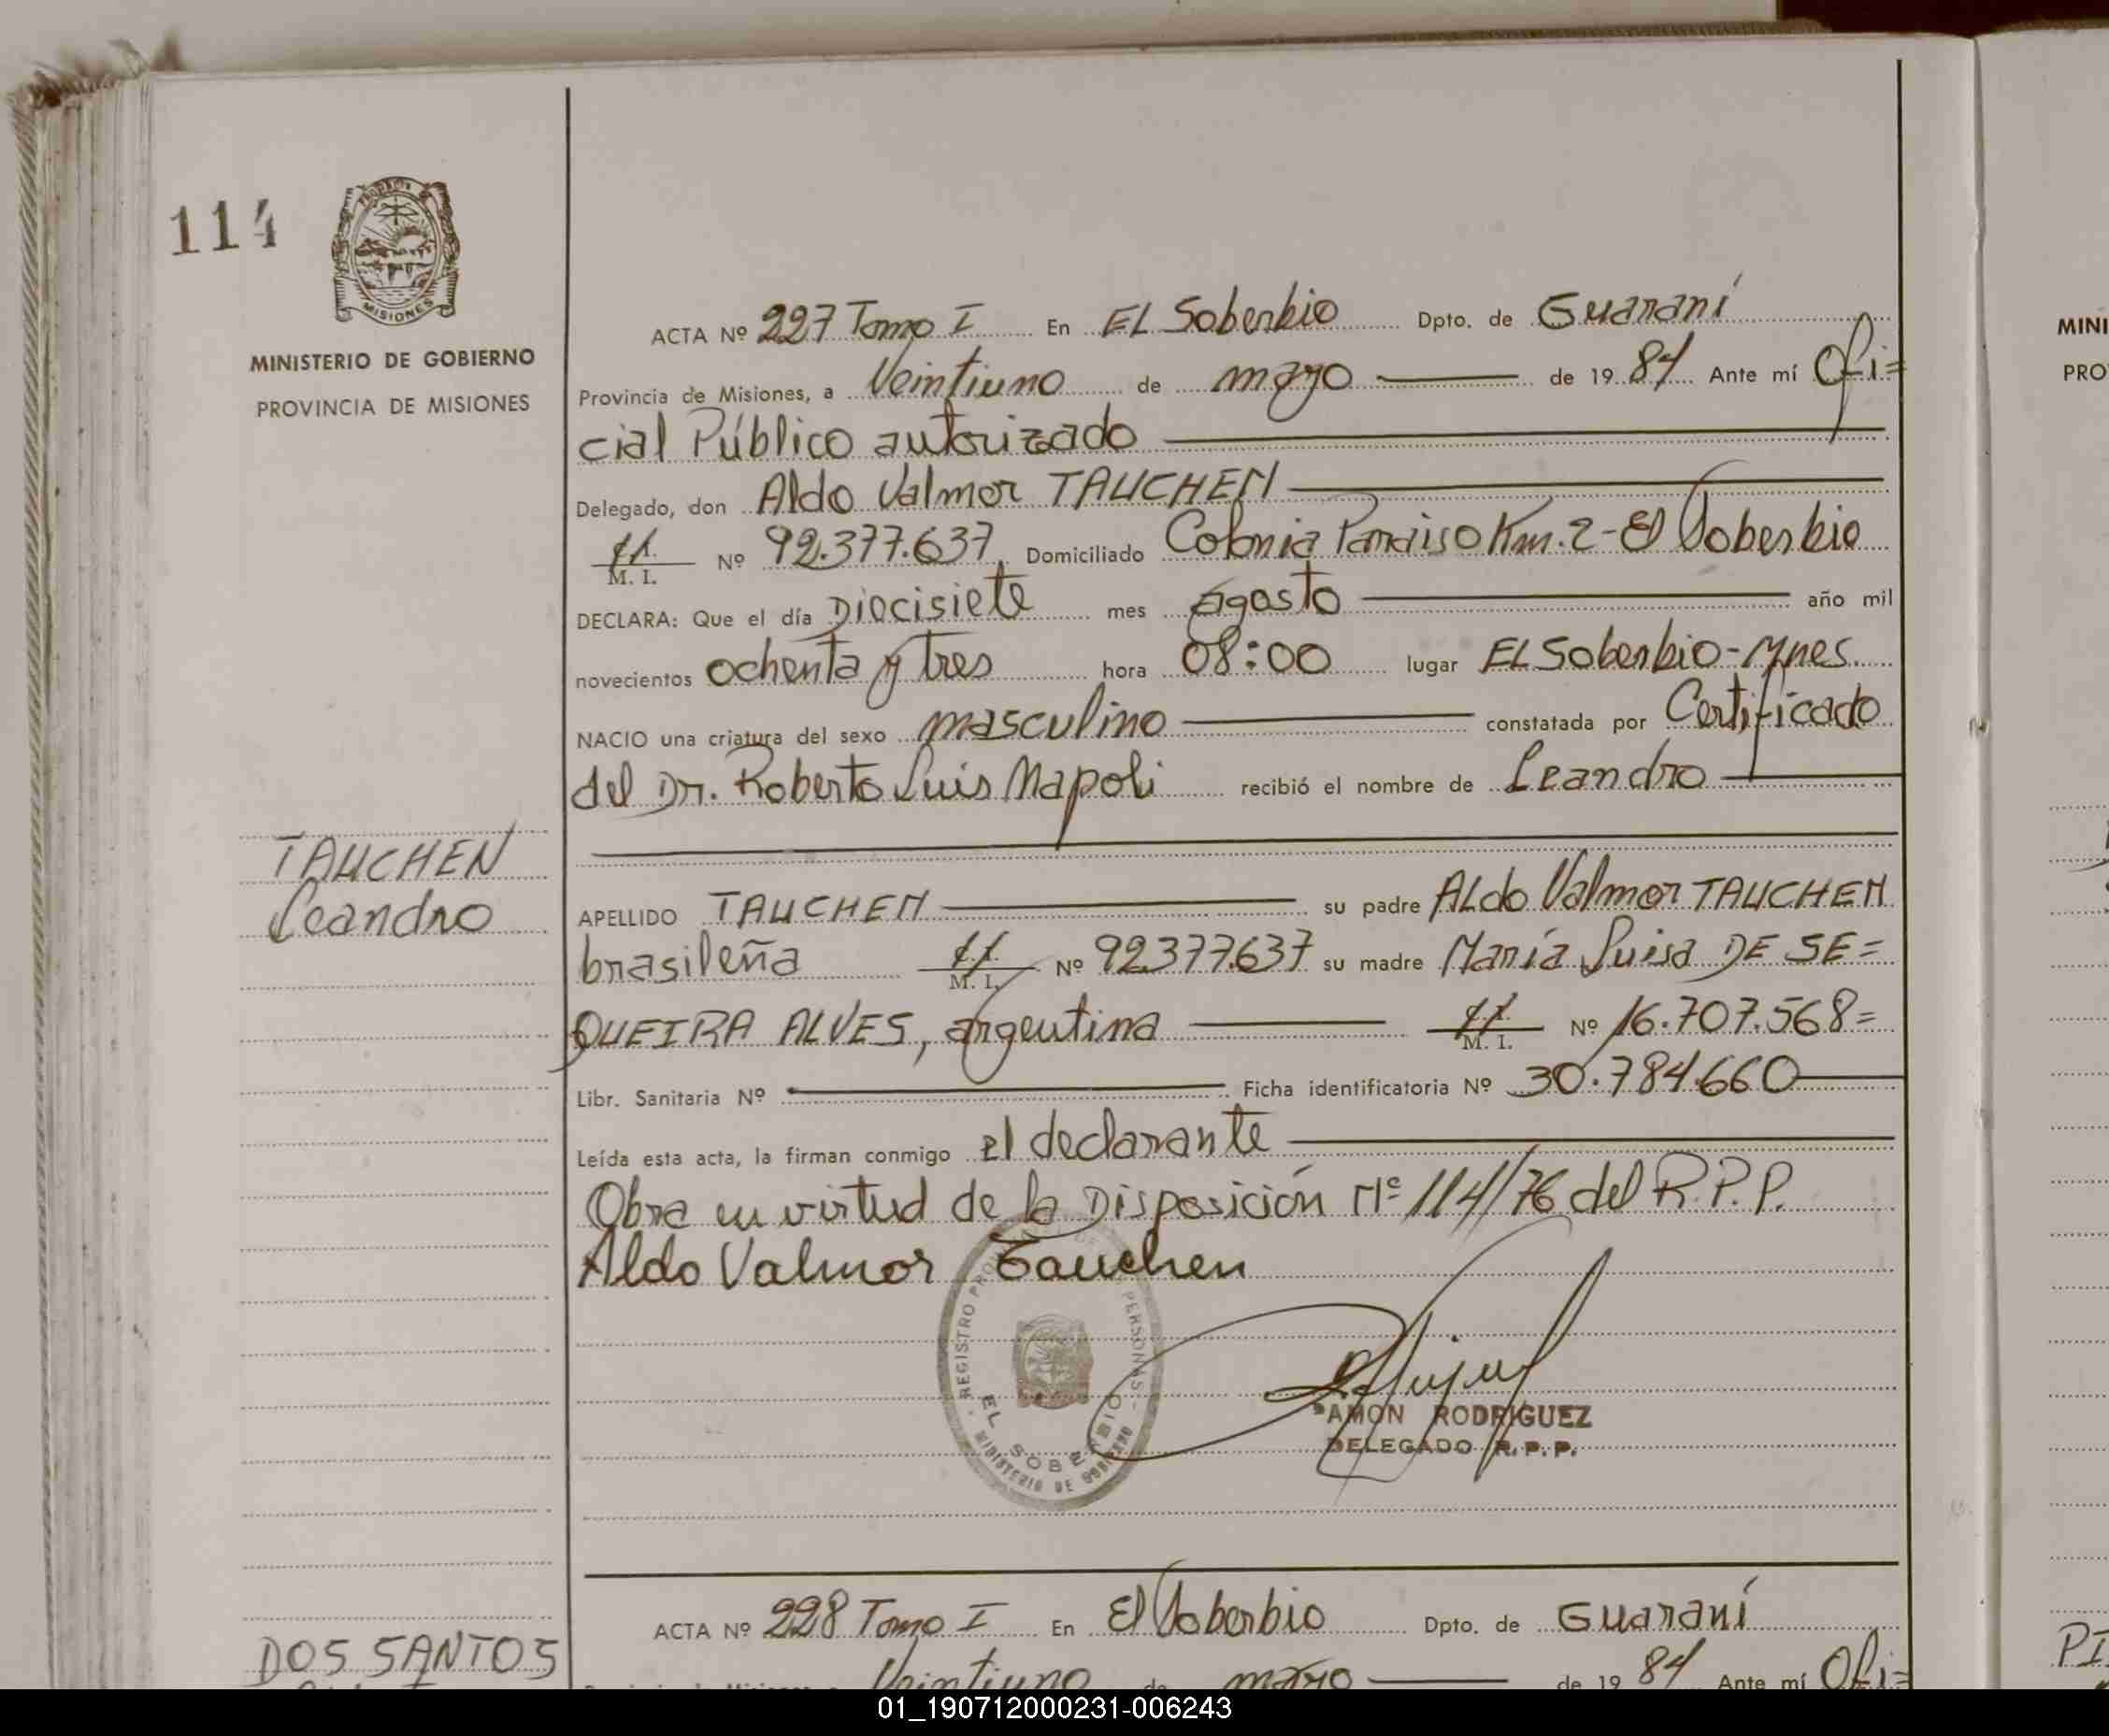 114
MISIONES
MINISTERIO DE GOBIERNO
PROVINCIA DE MISIONES
TAUCHEN
Leandro
DOS SANTOS
ACTA Nº 227 Tomo I En EL Soberbio Dpto. de Guaraní
Provincia de Misiones, a Veintiuno de mayo de 19 84 Ante mí Ofi=
cial Público autorizado
Delegado, don Aldo Valmor TAUCHEN
M. I. Nº 92.377.637 Domiciliado Colonia Paraiso Km. 2 - El Soberbio
DECLARA: Que el día Diecisiete mes Agosto año mil
novecientos ochenta y tres hora 08:00 lugar EL Soberbio - Mnes.
NACIO una criatura del sexo masculino constatada por Certificado
del Dr. Roberto Luis Napoli recibió el nombre de Leandro
APELLIDO TAUCHEN su padre ALdo Valmor TAUCHEN
brasileña M. I. Nº 92.377.637 su madre María Luisa DE SE=
QUEIRA ALVES, argentina M. I. Nº 16.707.568=
Libr. Sanitaria Nº Ficha identificatoria Nº 30.784.660
Leída esta acta, la firman conmigo el declarante
Obra en virtud de la Disposición Nº 114/76 del R.P.P.
Aldo Valmor Tauchen
REGISTRO PERSONAS
EL SOBERBIO
MINISTERIO DE GOBIERNO
RAMON RODRIGUEZ
DELEGADO R.P.P.
ACTA Nº 228 Tomo I En El Soberbio Dpto. de Guaraní
Veintiuno de mayo de 19 84 Ante mí Ofi=
MINI
PRO
PI
01_190712000231-006243